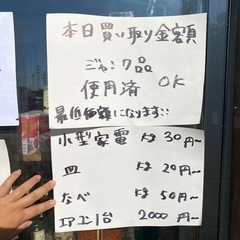 本日買い取り金額
ジャンク品
使用済 OK
最低価額になります::
小型家電 kg 30円~
皿 kg 20円~
なべ kg 50円~
エアコン1台 2000円~